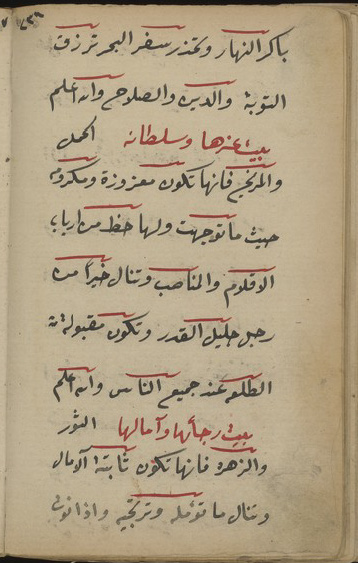 باكر النهار وتحذر سفر البحر ترزق
التوبة والدين والصلاح والله اعلم
بيت عزها وسلطانه الحمل
والمريخ فانها تكون معزوزة ومكرومه
حيث ما توجهت ولها حظ من ارباب
الاقلام والمناصب وتنال خيراً من
رجل جليل القدر وتكون مقبولة
الطلعه عند جميع الناس والله اعلم
بيت رجائها وآمالها الثور
والزهره فانها تكون ثابتة الآمال
وتنال ما تؤمله وترتجيه واذا